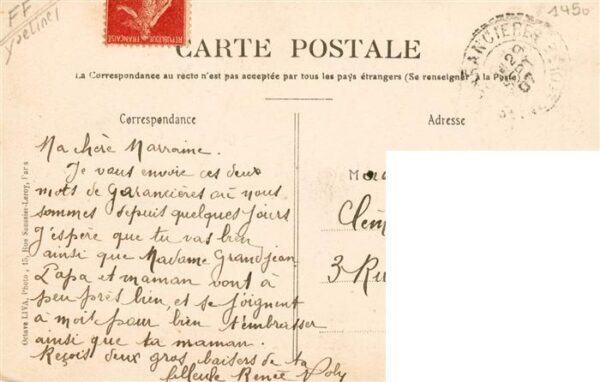 FF
Yvelines
1450
RÉPUBLIQUE FRANÇAISE
CARTE POSTALE
La Correspondance au recto n'est pas acceptée par tous les pays étrangers (Se renseigner à la Poste)
GARANCIÈRES
29
07
Correspondance
Adresse
Ma chère Marraine.
Je vous envoie ces deux
mots de Garancières où nous
sommes depuis quelques jours
J'espère que tu vas bien
ainsi que Madame Grandjean
Papa et maman vont à
peu près bien, et se joignent
à moi pour bien t'embrasser
ainsi que ta maman.
Reçois deux gros baisers de ta
filleule Renée Poly
Clém
3 Ru
Octave LIVA, Photo, 15, Rue Saussier-Leroy, Paris